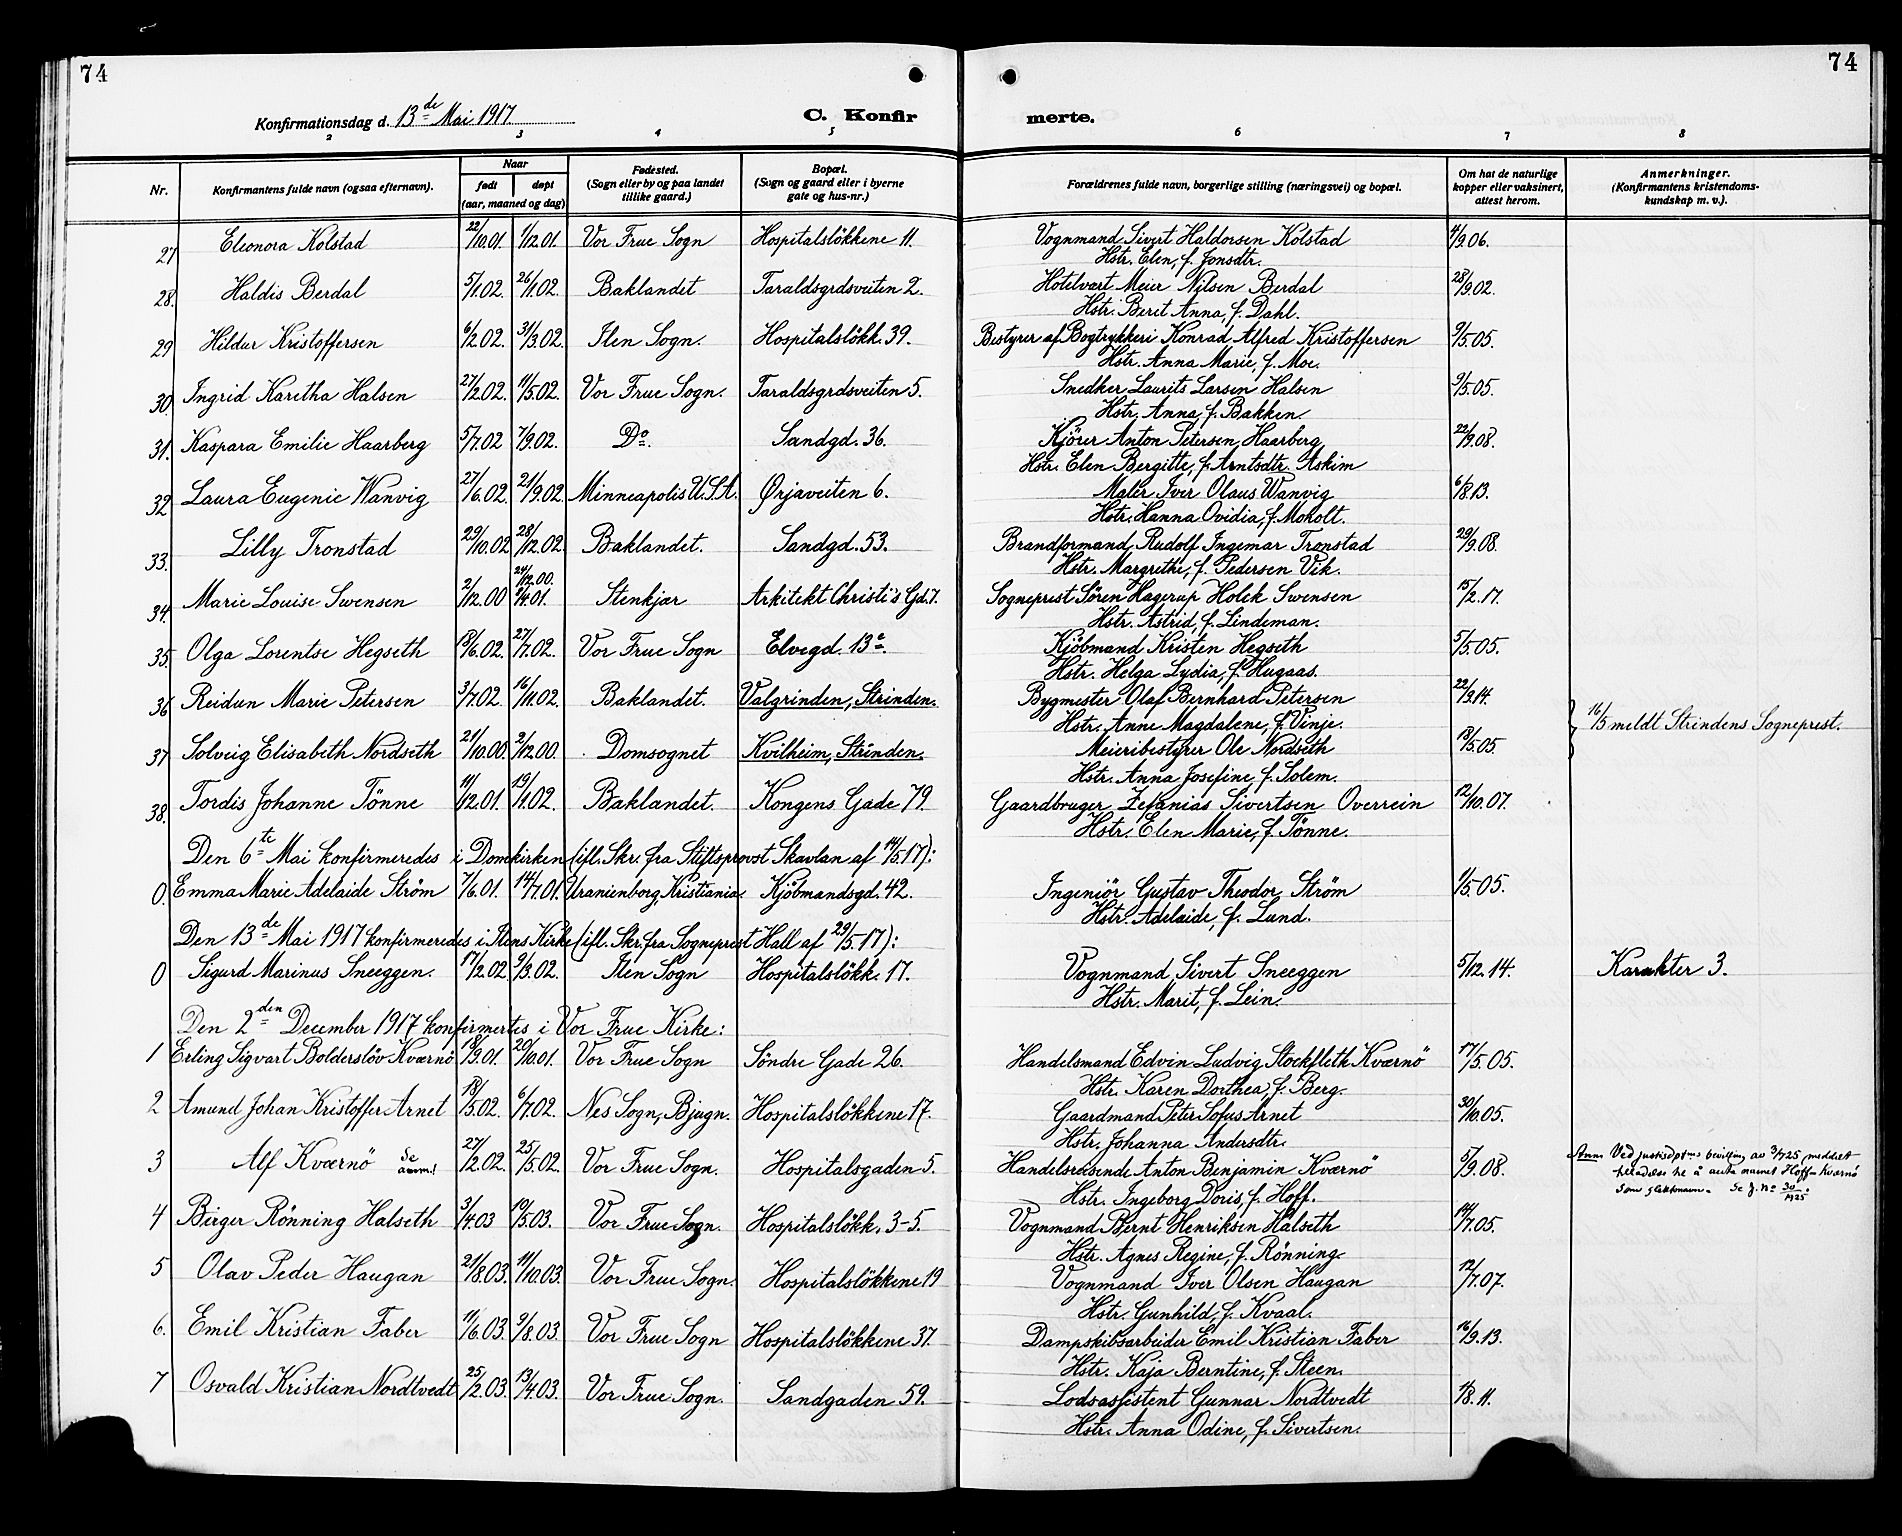 74
74
Konfirmationsdag d. 13de Mai 1917
C. Konfir
merte.
2 3 4 5 6 7 8
Nr.
Konfirmantens fulde navn (ogsaa efternavn).
Naar
født døpt
(aar, maaned og dag)
Fødested.
(Sogn eller by og paa landet
tillike gaard.)
Bopæl.
(Sogn og gaard eller i byerne
gate og hus-nr.)
Forældrenes fulde navn, borgerlige stilling (næringsvei) og bopæl.
Om hat de naturlige
kopper eller vaksinert,
attest herom.
Anmerkninger.
(Konfirmantens kristendoms-
kundskap m. v.).
27 Eleonora Kolstad 22/10.01. 1/12.01. Vor Frue Sogn Hospitalsløkkene 11. Vognmand Sivert Haldorsen Kolstad 4/9.06.
Hstr. Elen, f. Jonsdtr.
28. Haldis Berdal 5/1.02. 26/1.02. Baklandet Taraldsgrdsveiten 2. Hotelvært Meier Nilsen Berdal 28/9.02.
Hstr. Berit Anna, f. Dahl.
29 Hildur Kristoffersen 6/2.02. 31/3.02. Ilen Sogn. Hospitalsløkk. 39. Bestyrer af Bogtrykkeri Konrad Alfred Kristoffersen 9/5.05.
Hstr. Anna Marie, f. Moe.
30. Ingrid Karetha Halsen 27/2.02. 11/5.02. Vor Frue Sogn. Taraldsgrdsveiten 5. Snedker Laurits Larsen Halsen 9/5.05.
Hstr. Anna, f. Bakken.
31. Kaspara Emilie Haarberg 5/7.02 7/9.02. Do. Sandgd. 36. Kjörer Anton Petersen Haarberg 22/9.08.
Hstr. Elen Bergitte, f. Arntsdtr. Askim
32 Laura Eugenie Wanvig 27/6.02. 21/9.02. Minneapolis U.S.A. Ørjaveiten 6. Maler Iver Olaus Wanvig 6/8.13.
Hstr. Hanna Ovidia, f. Moholt.
33. Lilly Tronstad 29/10.02 28/12.02. Baklandet. Sandgd. 53. Brandformand Rudolf Ingemar Tronstad 29/9.08.
Hstr. Margrethe, f. Pedersen Vik.
24/12.00.
34. Marie Louise Swensen 2/12.00 9/4.01. Stenkjær Arkitekt Christi's Gd. 7. Sogneprest Sören Hagerup Holck Swensen 15/2.17.
Hstr. Astrid, f. Lindeman.
35. Olga Lorentse Hegseth 18/6.02. 27/7.02. Vor Frue Sogn Elvegd. 13a. Kjöbmand Kristen Hegseth 5/5.05.
Hstr. Helga Lydia, f. Hugaas.
36 Reidun Marie Petersen 3/7.02. 16/11.02. Baklandet. Valgrinden, Strinden. Bygmester Olaf Bernhard Petersen 22/9.14.
Hstr. Anne Magdalene, f. Vinje. 16/5 meldt Strindens Sogneprest.
37 Solveig Elisabeth Nordseth 21/10.00 2/12.00. Domsognet Kvilheim, Strinden. Meieribestyrer Ole Nordseth 18/5.05.
Hstr. Anna Josefine, f. Solem.
38. Tordis Johanne Tönne 11/12.01. 19/1.02. Baklandet. Kongens Gade 79. Gaardbruger Zefanias Sivertsen Overrein 12/10.07.
Hstr. Elen Marie, f. Tönne.
Den 6te Mai konfirmeredes i Domkirken (ifl. Skr. fra Stiftsprovst Skavlan af 14/5.17):
0. Emma Marie Adelaide Ström 7/6.01. 14/7.01. Uranienborg, Kristiania. Kjöbmandsgd. 42. Ingeniör Gustav Theodor Ström 1/5.05.
Hstr. Adelaide, f. Lund.
Den 13de Mai 1917 konfirmeredes i Ilens Kirke (ifl. Skr. fra Sogneprest Hall af 29/5.17):
0 Sigurd Marinus Sneeggen. 17/2.02. 9/3.02. Ilen Sogn Hospitalsløkk. 17. Vognmand Sivert Sneeggen 5/12.14. Karakter 3.
Hstr. Marit, f. Lein.
Den 2den December 1917 konfirmertes i Vor Frue Kirke:
1 Erling Sigvart Bolderslöv Kværnö 18/9.01. 20/10.01. Vor Frue Sogn Söndre Gade 26. Handelsmand Edvin Ludvig Stockfleth Kværnö 17/5.05.
Hstr. Karen Dorthea, f. Berg.
2 Amund Johan Kristoffer Arnet 18/5.02. 6/7.02. Nes Sogn, Bjugn. Hospitalslökkene 17. Gaardmand Peter Sofus Arnet 30/10.05.
Hstr. Johanna Andersdtr.
3 Alf Kværnö Se anm.! 27/2.02. 25/5.02. Vor Frue Sogn. Hospitalsgaden 5. Handelsreisende Anton Benjamin Kværnö 5/9.08. Anm. Ved justisdptms bevilling av 3/7.25 meddelt
Hstr. Ingeborg Doris, f. Hoff. navnet Hoff-Kværnö
som slektsnavn. Se j. no 30/1925.
4 Birger Rönning Halseth 3/4.03 19/5.03. Vor Frue Sogn. Hospitalsløkk. 3-5. Vognmand Bernt Henriksen Halseth 14/7.05.
Hstr. Agnes Regine, f. Rönning.
5 Olav Peder Haugan 21/8.03. 11/10.03. Vor Frue Sogn. Hospitalslökkene 19 Vognmand Iver Olsen Haugan 12/7.07.
Hstr. Gunhild, f. Kvaal.
6. Emil Kristian Faber 11/6.03. 9/8.03. Vor Frue Sogn Hospitalslökkene 37. Dampskibsarbeider Emil Kristian Faber 16/9.13.
Hstr. Kaja Berntine, f. Steen.
7 Osvald Kristian Nordtvedt 25/2.03. 13/4.03. Vor Frue Sogn. Sandgaden 59. Lodsassistent Gunnar Nordtvedt 1/8.11.
Hstr. Anna Odine, f. Sivertsen.